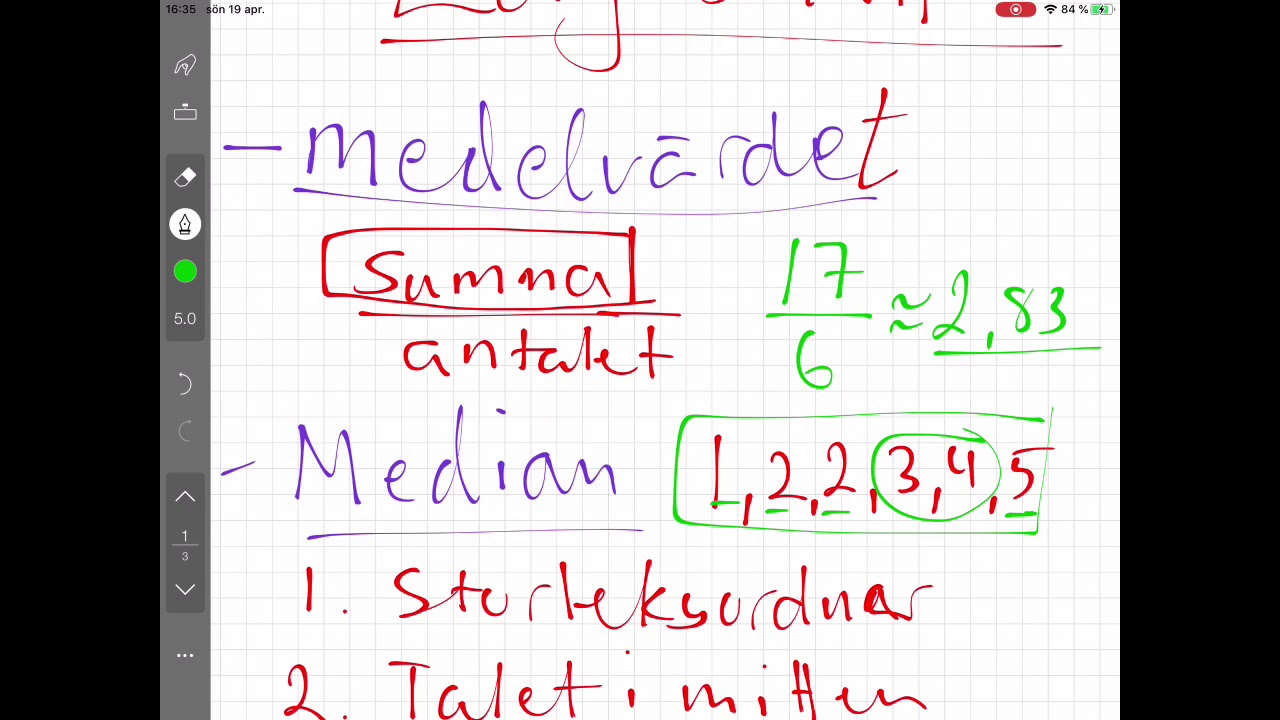 16:35 sön 19 apr. 84 %
- Medelvärdet
Summa
antalet
17
6
≈ 2,83
5.0
- Median
1, 2, 2, 3, 4, 5
1
3
1. Storleksordnar
2. Talet i mitten